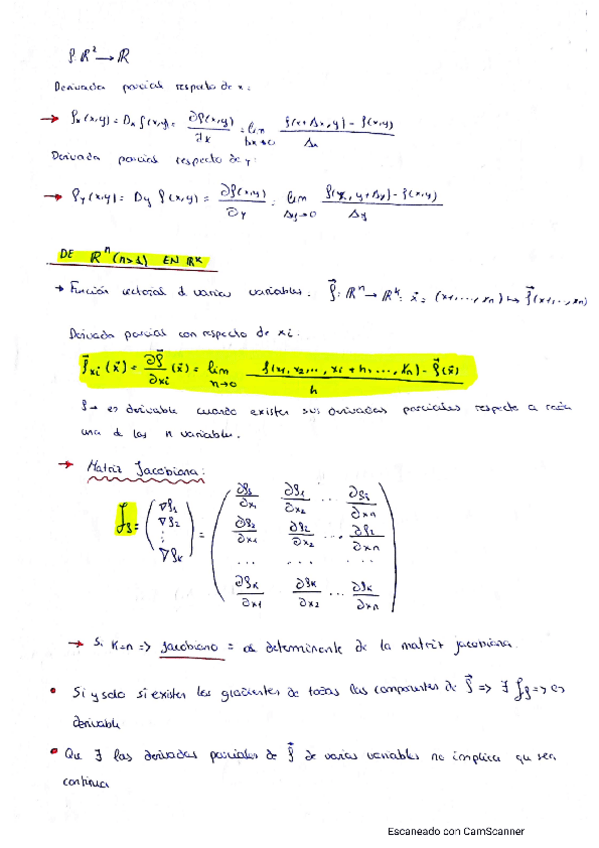 f: R² → R
Derivada parcial respecto de x:
→ fx(x,y) = Dx f(x,y) = ∂f(x,y)/∂x = lim Δx→0 f(x+Δx, y) - f(x,y) / Δx
Derivada parcial respecto de y:
→ fy(x,y) = Dy f(x,y) = ∂f(x,y)/∂y = lim Δy→0 f(x, y+Δy) - f(x,y) / Δy
DE Rⁿ (n>1) EN Rᵏ
→ Función vectorial d varias variables. f⃗: Rⁿ → Rᵏ: x⃗ = (x1, ..., xn) ↦ f⃗(x1, ..., xn)
Derivada parcial con respecto de xi.
f⃗xi (x⃗) = ∂f⃗/∂xi (x⃗) = lim n→0 f(x1, x2, ..., xi + h, ..., xn) - f⃗(x⃗) / h
f → es derivable cuando existen sus derivadas parciales respecto a cada
una d las n variables.
→ Matriz Jacobiana:
Jf = (∇f1 ∇f2 ⋮ ∇fk) = (∂f1/∂x1 ∂f1/∂x2 ... ∂f1/∂xn
∂f2/∂x1 ∂f2/∂x2 ... ∂f2/∂xn
... ... ...
∂fk/∂x1 ∂fk/∂x2 ... ∂fk/∂xn)
→ Si K=n => Jacobiano = determinante de la matriz jacobiana.
• Si y solo si existen los gradientes de todas las componentes de f⃗ => ∃ Jf => es
derivable
• Que ∃ las derivadas parciales de f⃗ de varias variables no implica qu sea
continua
Escaneado con CamScanner